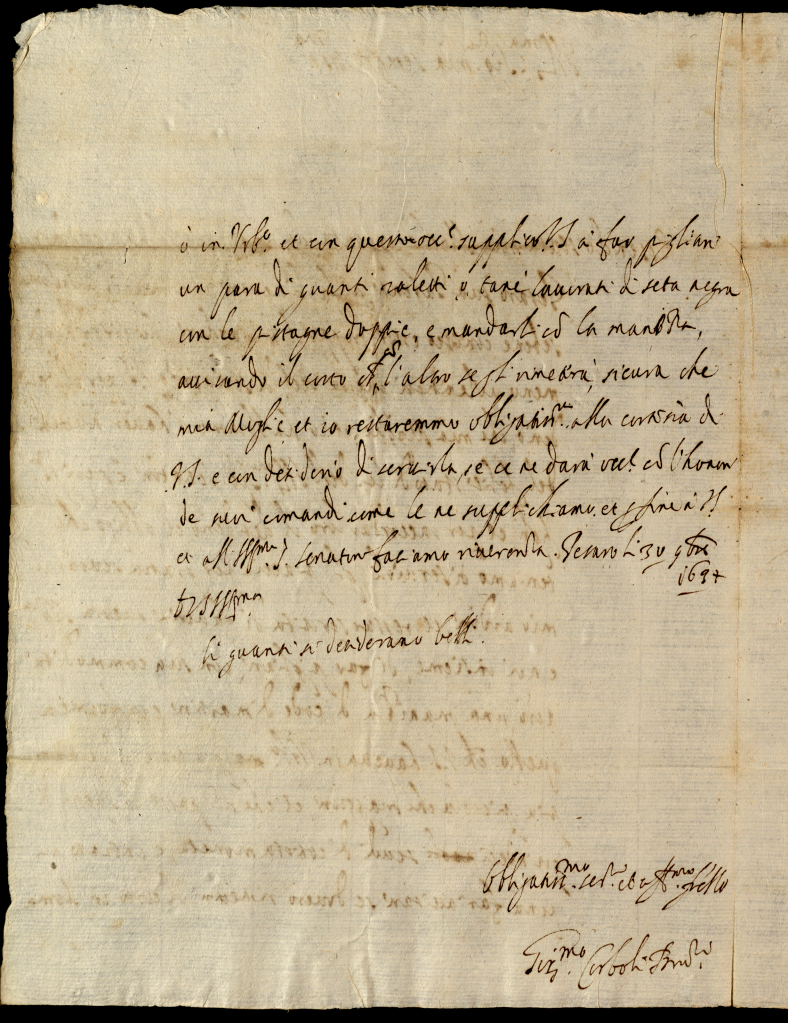 ò in Urb.º et con questa occ.e supplico V.S. à far pigliare
un paro di guanti o tanè lavorati di seta negra
con le pistagne doppie, e mandarli cõ la
avisando il costo l'altro se gli rimeterà, sicura che
mia Moglie et io restaremmo obligatiss.mi alla cortesia di
V.S. e con desiderio di servirla, se ce ne darà occ.e cõ l'honore
de suoi comandi come le ne supplichiamo, et p fine à V.S.
et all'Ill.mo S. Senatore facciamo riverenza. Pesaro li 30 9bre
163
D V.S. Ill.ma
li guanti si desiderano belli.
Obligatiss.mo ser.re et aff.mo frello
Gir.mo